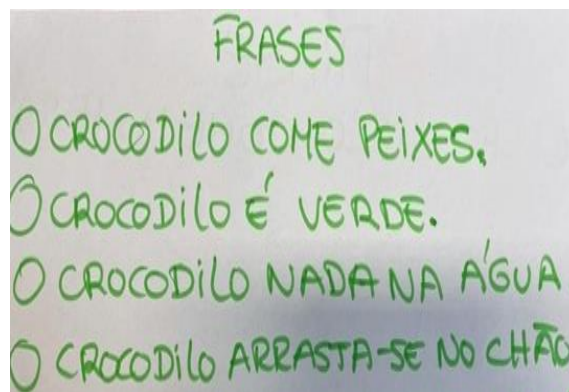 FRASES
O CROCODILO COME PEIXES.
O CROCODILO É VERDE.
O CROCODILO NADA NA ÁGUA
O CROCODILO ARRASTA-SE NO CHÃO